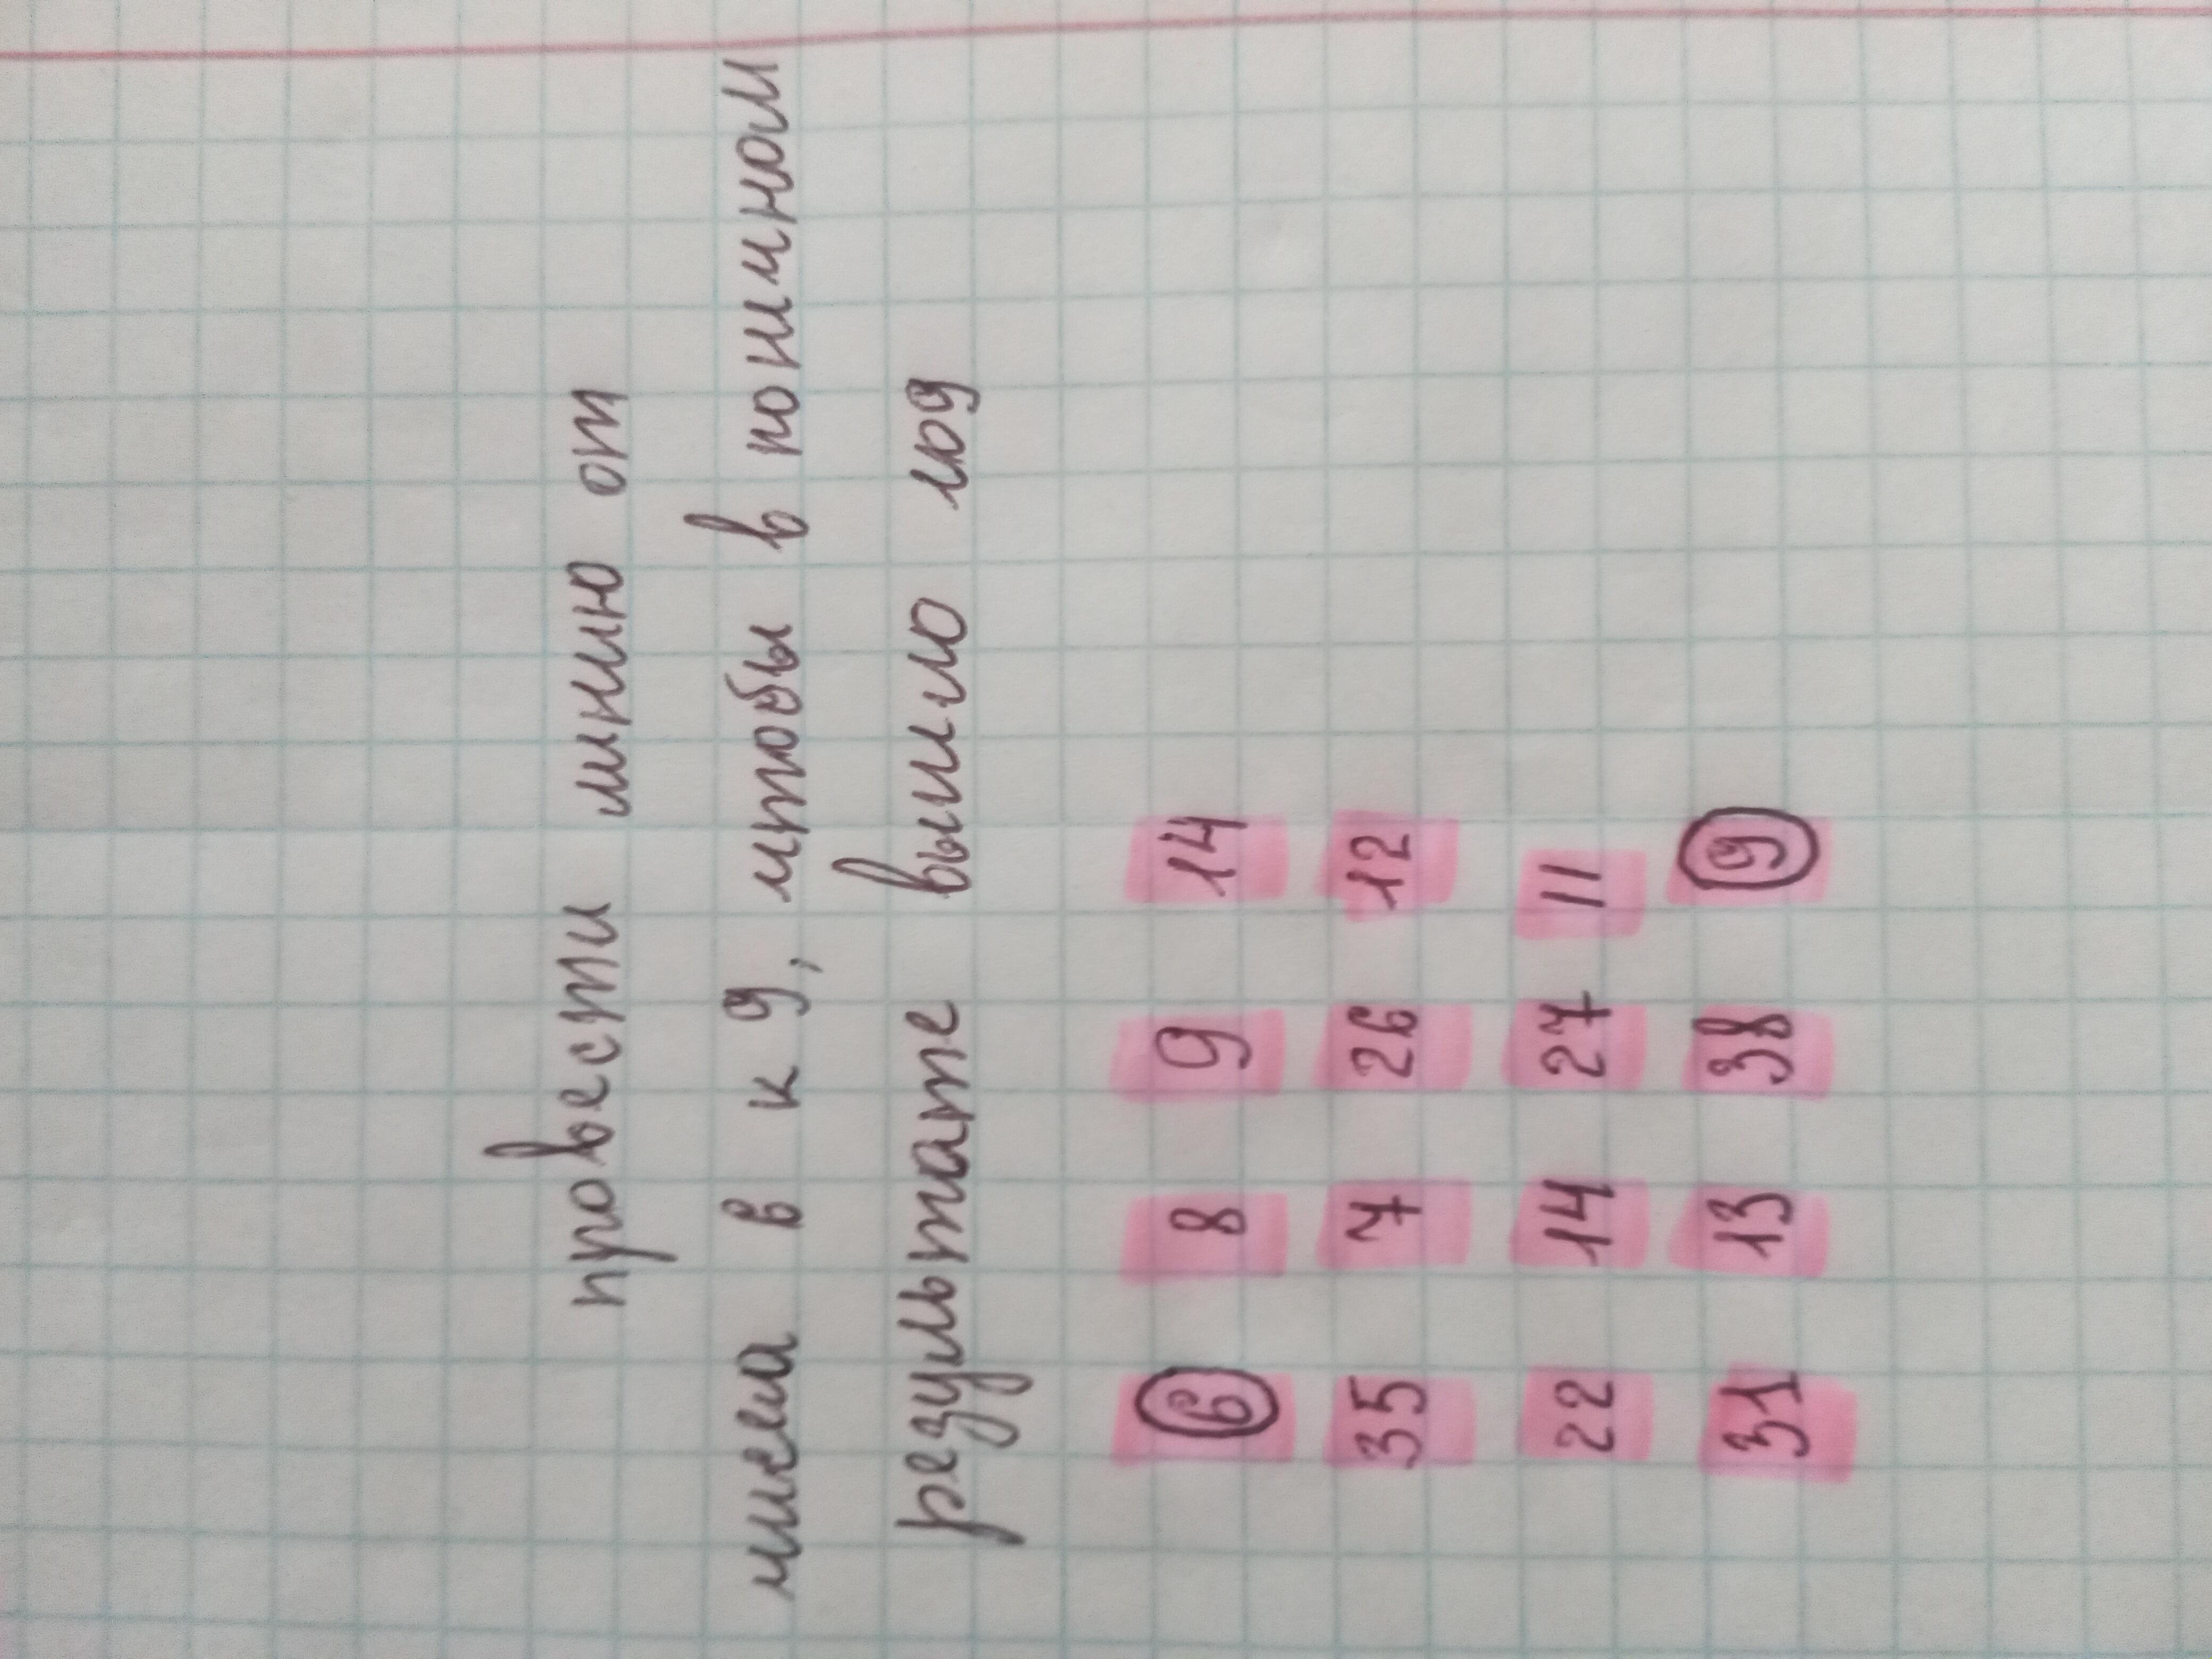 провести линию от
числа 6 к 9, чтобы в конечном
результате вышло 109
6 8 9 14
35 7 26 12
22 14 27 11
31 13 38 9